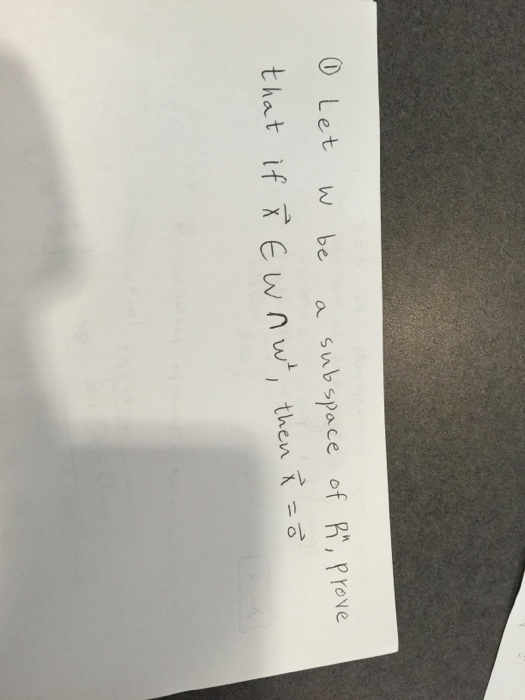 ① Let w be a subspace of Rⁿ, prove
that if x⃗ ∈ W ∩ W⊥, then x⃗ = 0⃗